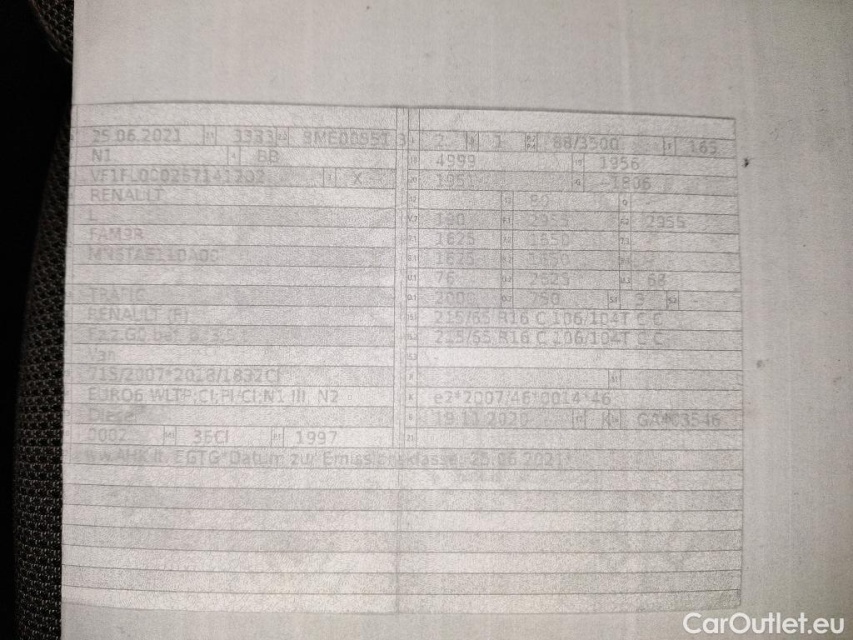 25.06.2021 3333 BME00951 3 2 1 88/3500 165
N1 BB 4999 1956
X 1951 -1806
RENAULT 80
L 190 2955 2955
FAM3R 1625 1650
1625 1650
76 2625 68
TRAFIC 2000 750 3
RENAULT (F) 215/65 R16 C 106/104T C C
Fz.z.GÜ bef. B.3,5 t 215/65 R16 C 106/104T C C
Van
715/2007*2018/1832CI
EURO6 WLTP;CI;PI CI;N1 III, N2 e2*2007/46*0014*46
Diesel 19.11.2020 K
0002 36CI 1997
Datum zur Emissionsklasse: 25.06.2021*
CarOutlet.eu